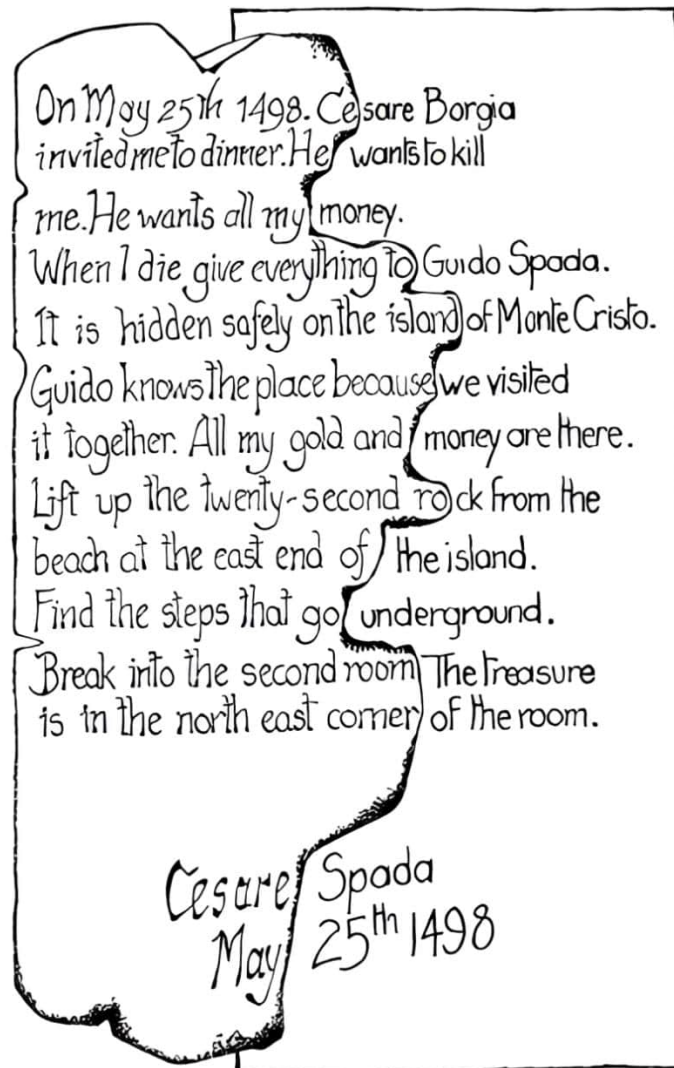 On May 25th 1498. Cesare Borgia
invited me to dinner. He wants to kill
me. He wants all my money.
When I die give everything to Guido Spada.
It is hidden safely on the island of Monte Cristo.
Guido knows the place because we visited
it together. All my gold and money are there.
Lift up the twenty-second rock from the
beach at the east end of the island.
Find the steps that go underground.
Break into the second room The treasure
is in the north east corner of the room.
Cesare Spada
May 25th 1498